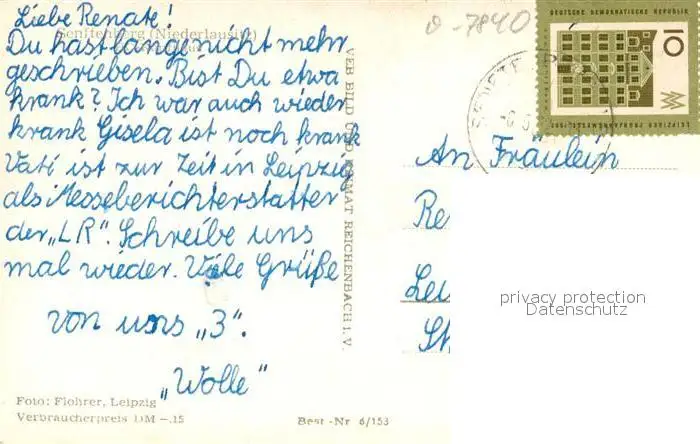 Liebe Renate!
Senftenberg (Niederlausitz)
Du hast lange nicht mehr
geschrieben. Bist Du etwa
krank? Ich war auch wieder
krank Gisela ist noch krank
Vati ist zur Zeit in Leipzig
als Messeberichterstatter
der „LR". Schreibe uns
mal wieder. Viele Grüße
von uns „3".
„Wolle"
Foto: Flohrer, Leipzig
Verbraucherpreis DM –.15
Best.-Nr 6/153
VEB BILD UND HEIMAT REICHENBACH i. V.
7840
DEUTSCHE DEMOKRATISCHE REPUBLIK
10
An Fräulein
Re
Lei
St
privacy protection
Datenschutz